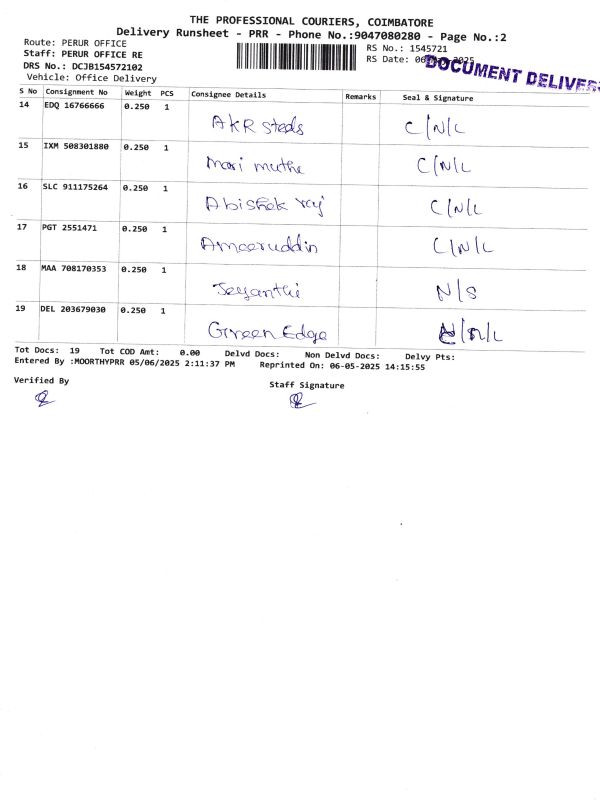 THE PROFESSIONAL COURIERS, COIMBATORE
Delivery Runsheet - PRR - Phone No.:9047080280 - Page No.:2
Route: PERUR OFFICE
RS No.: 1545721
Staff: PERUR OFFICE RE
RS Date: 06 2025
DOCUMENT DELIVER
DRS No.: DCJB154572102
Vehicle: Office Delivery
S No Consignment No Weight PCS Consignee Details Remarks Seal & Signature
14 EDQ 16766666 0.250 1 AKR steds C/N/L
15 IXM 508301880 0.250 1 Mari muthu C/N/L
16 SLC 911175264 0.250 1 Abishek raj C/N/L
17 PGT 2551471 0.250 1 Ameeruddin C/N/L
18 MAA 708170353 0.250 1 Jeyanthi N/S
19 DEL 203679030 0.250 1 Green Edge /N/L
Tot Docs: 19 Tot COD Amt: 0.00 Delvd Docs: Non Delvd Docs: Delvy Pts:
Entered By :MOORTHYPRR 05/06/2025 2:11:37 PM Reprinted On: 06-05-2025 14:15:55
Verified By
Staff Signature